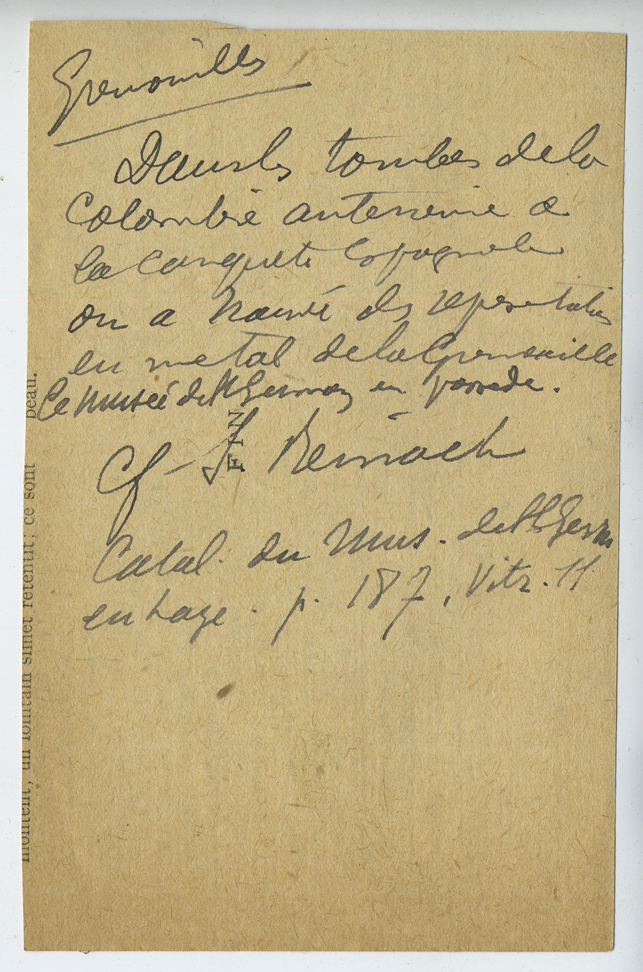 Grenouilles
Dans les tombes de la
Colombie anterieure a
la conquete Espagnole
on a trouvé des representations
en metal de la Grenouille
Le Musée de St Germain en possede.
Cf - S. Reinach
Catal. du Mus. de St Germ
en Laye. p. 187, Vitr. 11
FIN
montent, un lointain sifflet retentit; ce sont
beau.